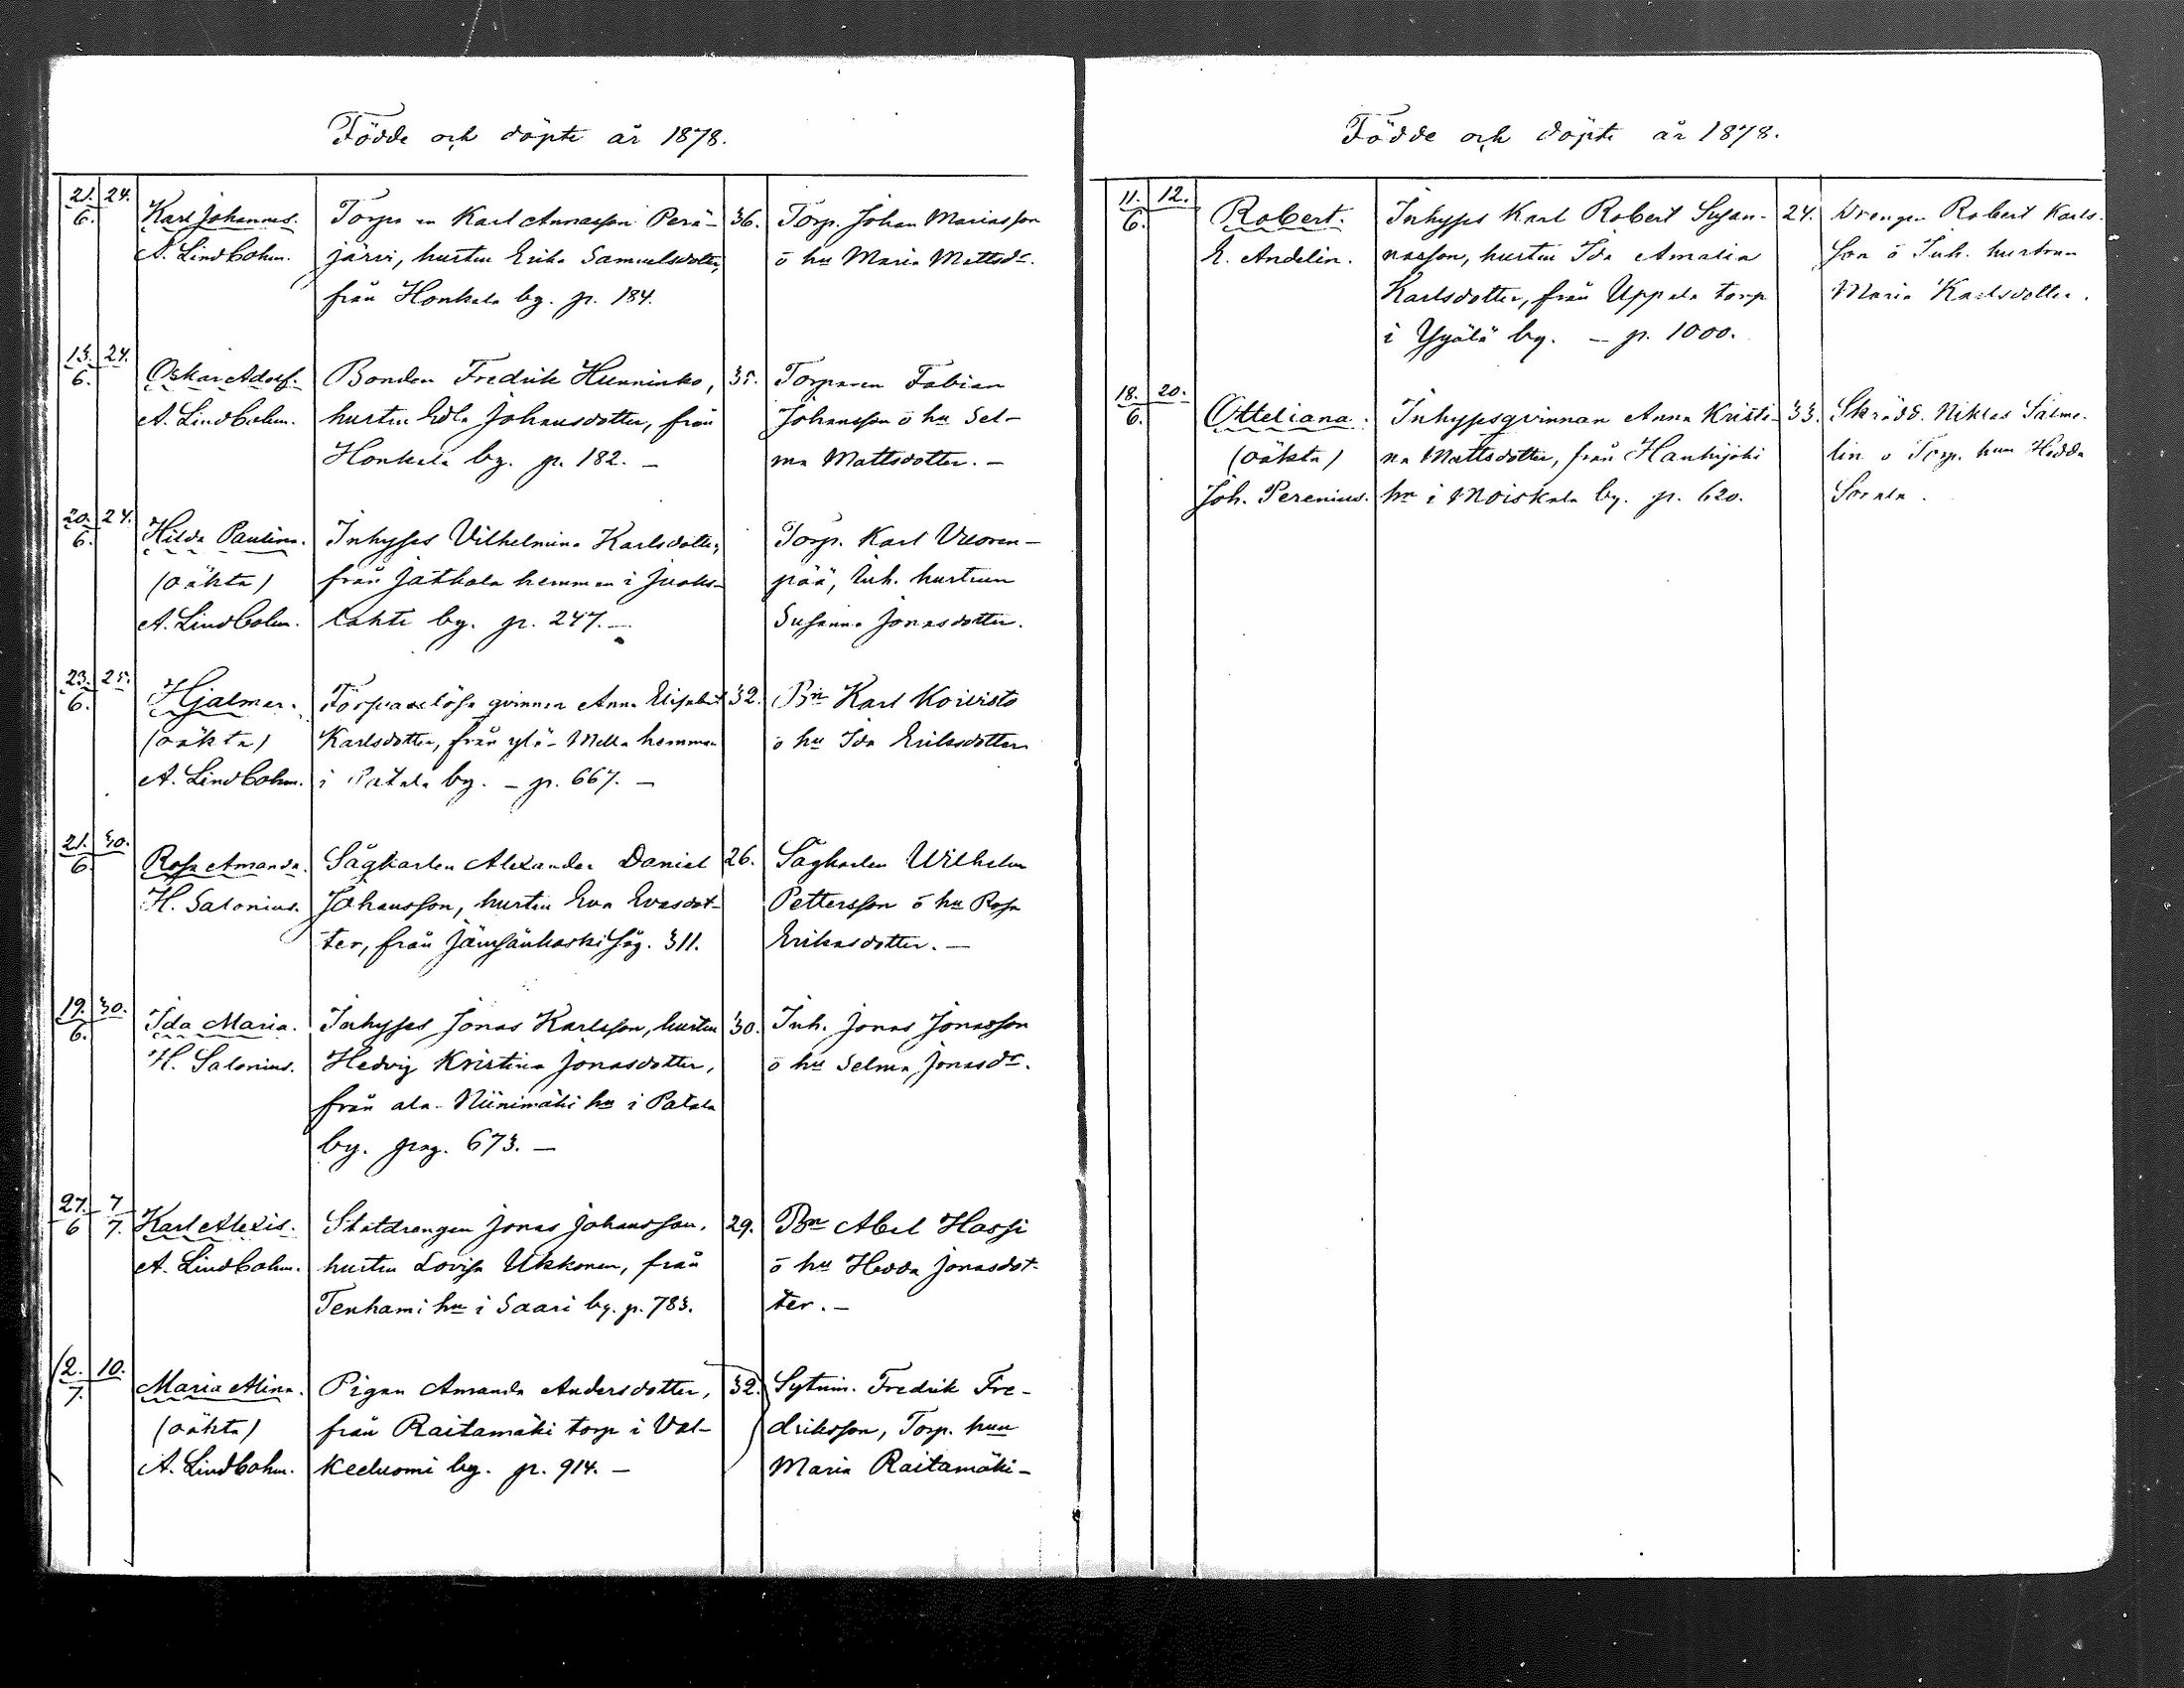 Födde och döpte år 1878.
21. 24.
6.
Karl Johannes. Torparen Karl Annasson Perä- 36. Torp. Johan Mariasson
A. Lindbohm. järvi, hustru Erika Samuelsdotter, o hu Maria Mattsdr.
från Honkala by. p. 184.
13. 24.
6.
Oskar Adolf. Bonden Fredrik Hunninko, 35. Torparen Fabian
A. Lindbohm. hustru Edla Johansdotter, från Johansson o hu Sel-
Honkala by. p. 182. — ma Mattsdotter. —
20. 24.
6.
Hilda Paulina. Inhyses Vilhelmina Karlsdotter, Torp. Karl Vuoren-
(oäkta) från Jatkola hemman i Juoks- pää, Inh. hustrun
A. Lindbohm. lahti by. p. 247. — Susanna Jonasdotter.
23. 25.
6.
Hjalmar. Försvarslösa qvinnan Anna Elisabet 32. Bn Karl Koivisto
(oäkta) Karlsdotter, från ylä-Mella hemman o hu Ida Eriksdotter
A. Lindbohm. i Patala by. — p. 667. —
21. 30.
6.
Rosa Amanda. Sågkarlen Alexander Daniel 26. Sågkarlen Wilhelm
H. Salonius. Johansson, hustru Eva Evasdot- Pettersson o hu Rosa
ter, från Jämsänkoski såg. 311. Eriksdotter. —
19. 30.
6.
Ida Maria. Inhyses Jonas Karlsson, hustru 30. Inh. Jonas Jonasson
H. Salonius. Hedvig Kristina Jonasdotter, o hu Selma Jonasdr.
från ala-Niinimäki hn i Patala
by. pag. 673. —
27. 7
6 7.
Karl Alexis. Statdrengen Jonas Johansson, 29. Bn Abel Hassi
A. Lindbohm. hustru Lovisa Ukkonen, från o hu Hedda Jonasdot-
Tenhami hn i Saari by. p. 783. ter. —
2. 10.
7.
Maria Alina. Pigan Amanda Andersdotter, 32. Sytnin. Fredrik Fre-
(oäkta) från Raitamäki torp i Val- driksson, Torp. hun
A. Lindbohm. keeluomi by. p. 914. — Maria Raitamäki —
Födde och döpte år 1878.
11. 12.
6.
Robert. Inhyses Karl Robert Susan- 24. Drengen Robert Karls-
E. Andelin. nasson, hustru Ida Amalia son o Inh. hustrun
Karlsdotter, från Uppala torp Maria Karlsdotter.
i Yyälä by. — p. 1000.
18. 20.
6.
Otteliana. Inhysesqvinnan Anna Kristi- 33. Skrädd. Niklas Salme-
(oäkta) na Mattsdotter, från Hankijoki lin o Torp. hun Hedda
Joh. Perenius. hn i Moiskala by. p. 620. Sorala.